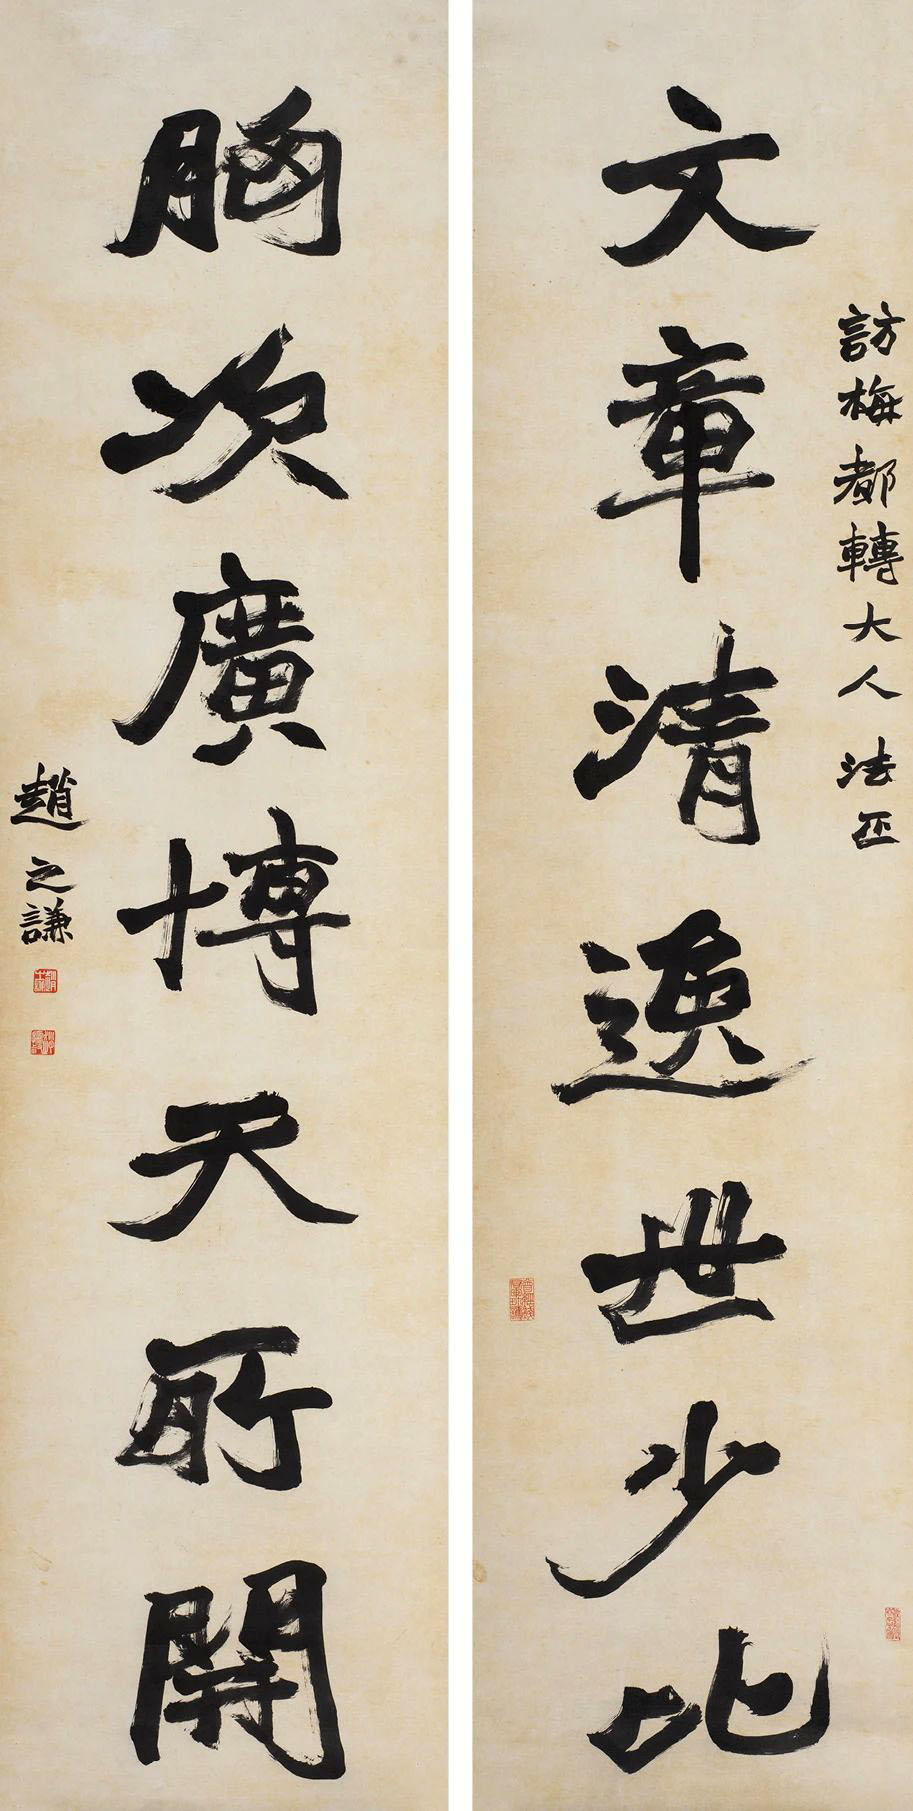 訪梅都轉大人 法正
文章清逸世少比
胸次廣博天所開
趙之謙